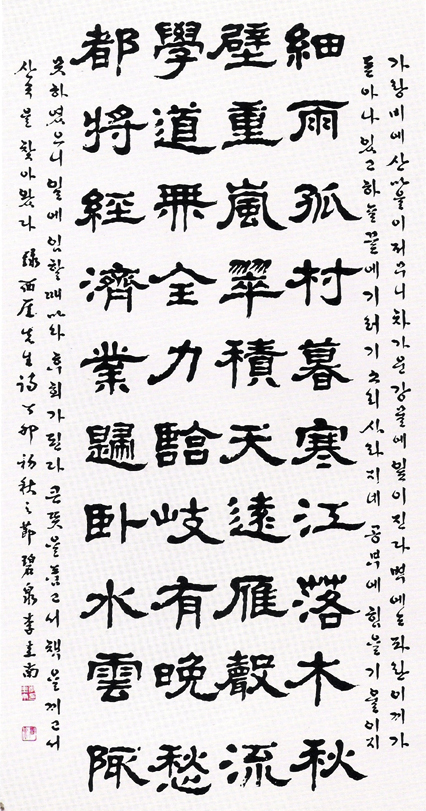 가랑비에 산마을이 저무니 차가운 강물에 잎이 진다 벽에는 파란 이끼가
돋아나 있고 하늘 끝에 기러기 소리 사라지네 공부에 힘을 기울이지
細雨孤村暮寒江落木秋
壁重嵐翠積天遠雁聲流
學道無全力臨岐有晩愁
都將經濟業歸臥水雲陬
못하였으니 일에 임할 때마다 후회가 된다 큰 뜻을 품고서 책을 끼고서
산속을 찾아왔다 錄西厓先生詩 丁卯初秋之節 碧泉 李圭南